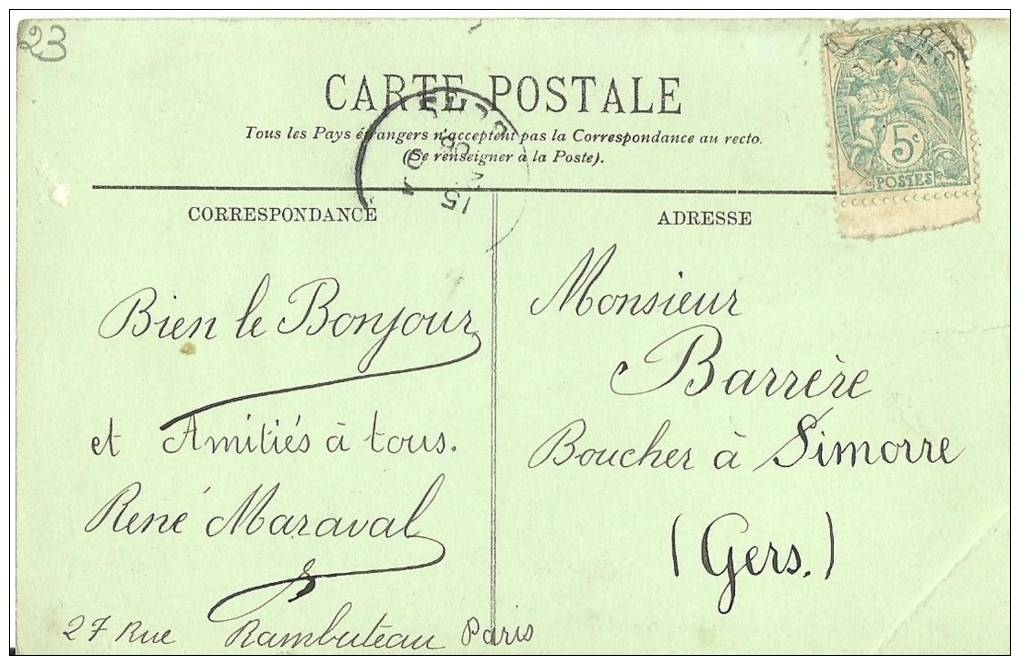 23
CARTE POSTALE
Tous les Pays étrangers n'acceptent pas la Correspondance au recto.
(Se renseigner à la Poste).
5c
POSTES
CORRESPONDANCE
Bien le Bonjour
et Amitiés à tous.
René Maraval
27 Rue Rambuteau Paris
ADRESSE
Monsieur
Barrère
Boucher à Simorre
(Gers.)